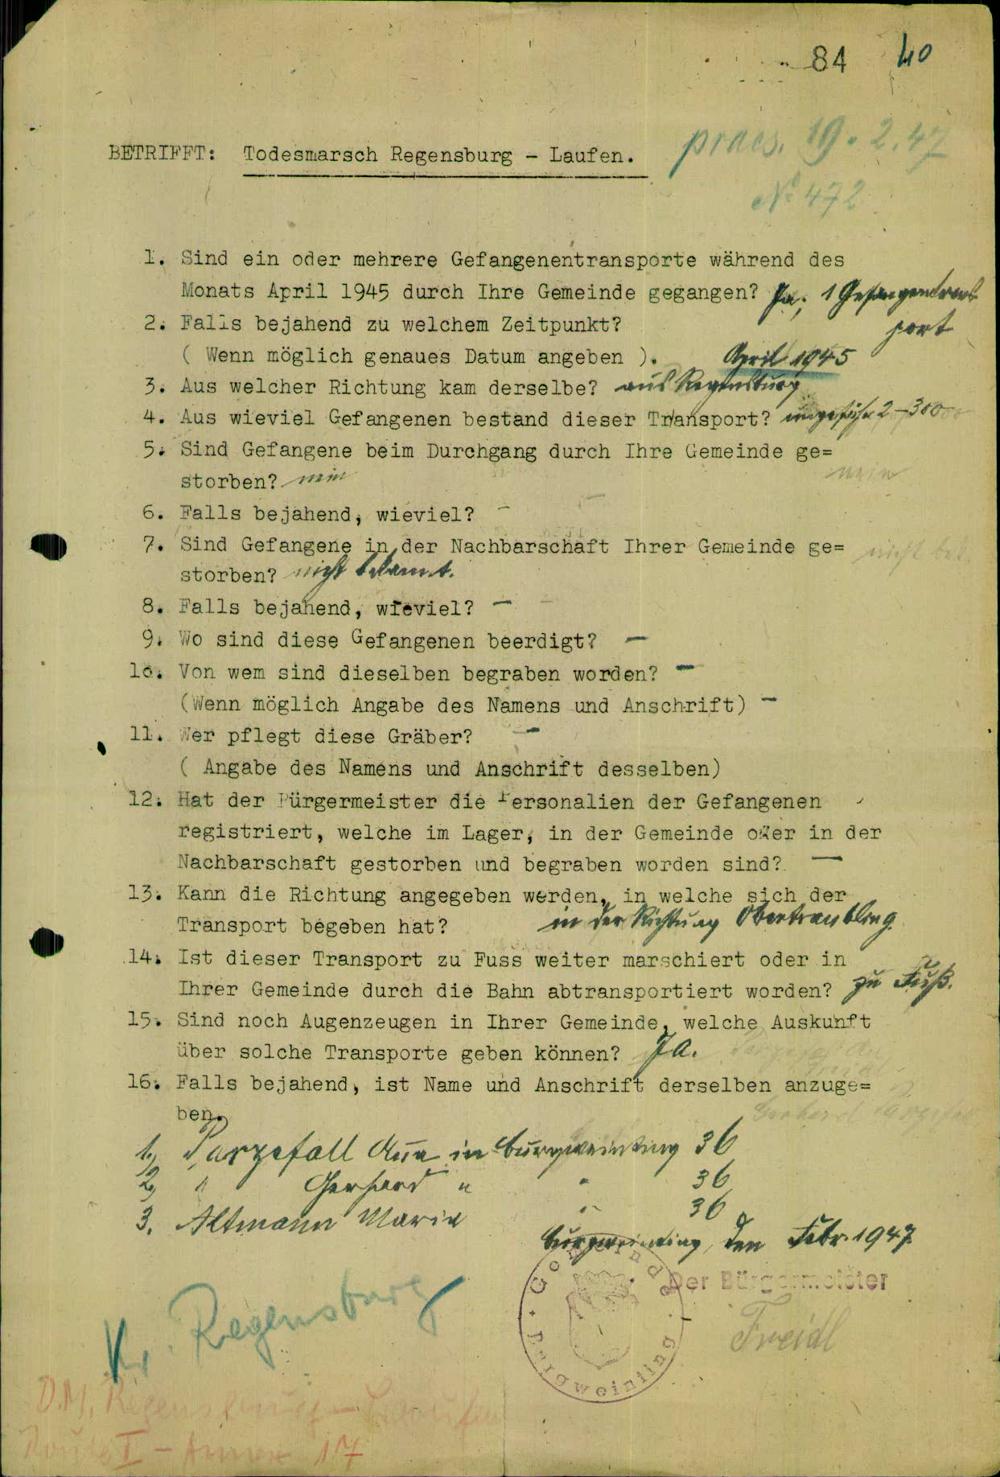 84 40
BETRIFFT: Todesmarsch Regensburg - Laufen.
praes. 19.2.47
No 472
1. Sind ein oder mehrere Gefangenentransporte während des
Monats April 1945 durch Ihre Gemeinde gegangen? Ja, 1 Gefangentrans
port
2. Falls bejahend zu welchem Zeitpunkt?
( Wenn möglich genaues Datum angeben ). April 1945
3. Aus welcher Richtung kam derselbe? aus Regensburg
4. Aus wieviel Gefangenen bestand dieser Transport? ungefähr 2-300
5. Sind Gefangene beim Durchgang durch Ihre Gemeinde ge=
nein
storben? nein
6. Falls bejahend, wieviel? -
7. Sind Gefangene in der Nachbarschaft Ihrer Gemeinde ge= nicht bek.
storben? nicht bekannt.
8. Falls bejahend, wieviel? -
9. Wo sind diese Gefangenen beerdigt? -
10. Von wem sind dieselben begraben worden? -
(Wenn möglich Angabe des Namens und Anschrift) -
11. Wer pflegt diese Gräber? -
( Angabe des Namens und Anschrift desselben)
12. Hat der Bürgermeister die Personalien der Gefangenen
registriert, welche im Lager, in der Gemeinde oder in der
Nachbarschaft gestorben und begraben worden sind? -
13. Kann die Richtung angegeben werden, in welche sich der
Transport begeben hat? in der Richtung Obertraubling
14. Ist dieser Transport zu Fuss weiter marschiert oder in
Ihrer Gemeinde durch die Bahn abtransportiert worden? zu Fuß.
15. Sind noch Augenzeugen in Ihrer Gemeinde, welche Auskunft
über solche Transporte geben können? Ja.
16. Falls bejahend, ist Name und Anschrift derselben anzuge=
ben.
1. Parzefall Anna in Burgweinting 36
2. " Gerhard " " 36
3. Altmann Maria " 36
Burgweinting, den Febr. 1947
Gemeinde Burgweinting
Der Bürgermeister
Freidl
Kr. Regensburg
D.M. Regensburg - Laufen
Route I - Annex 17